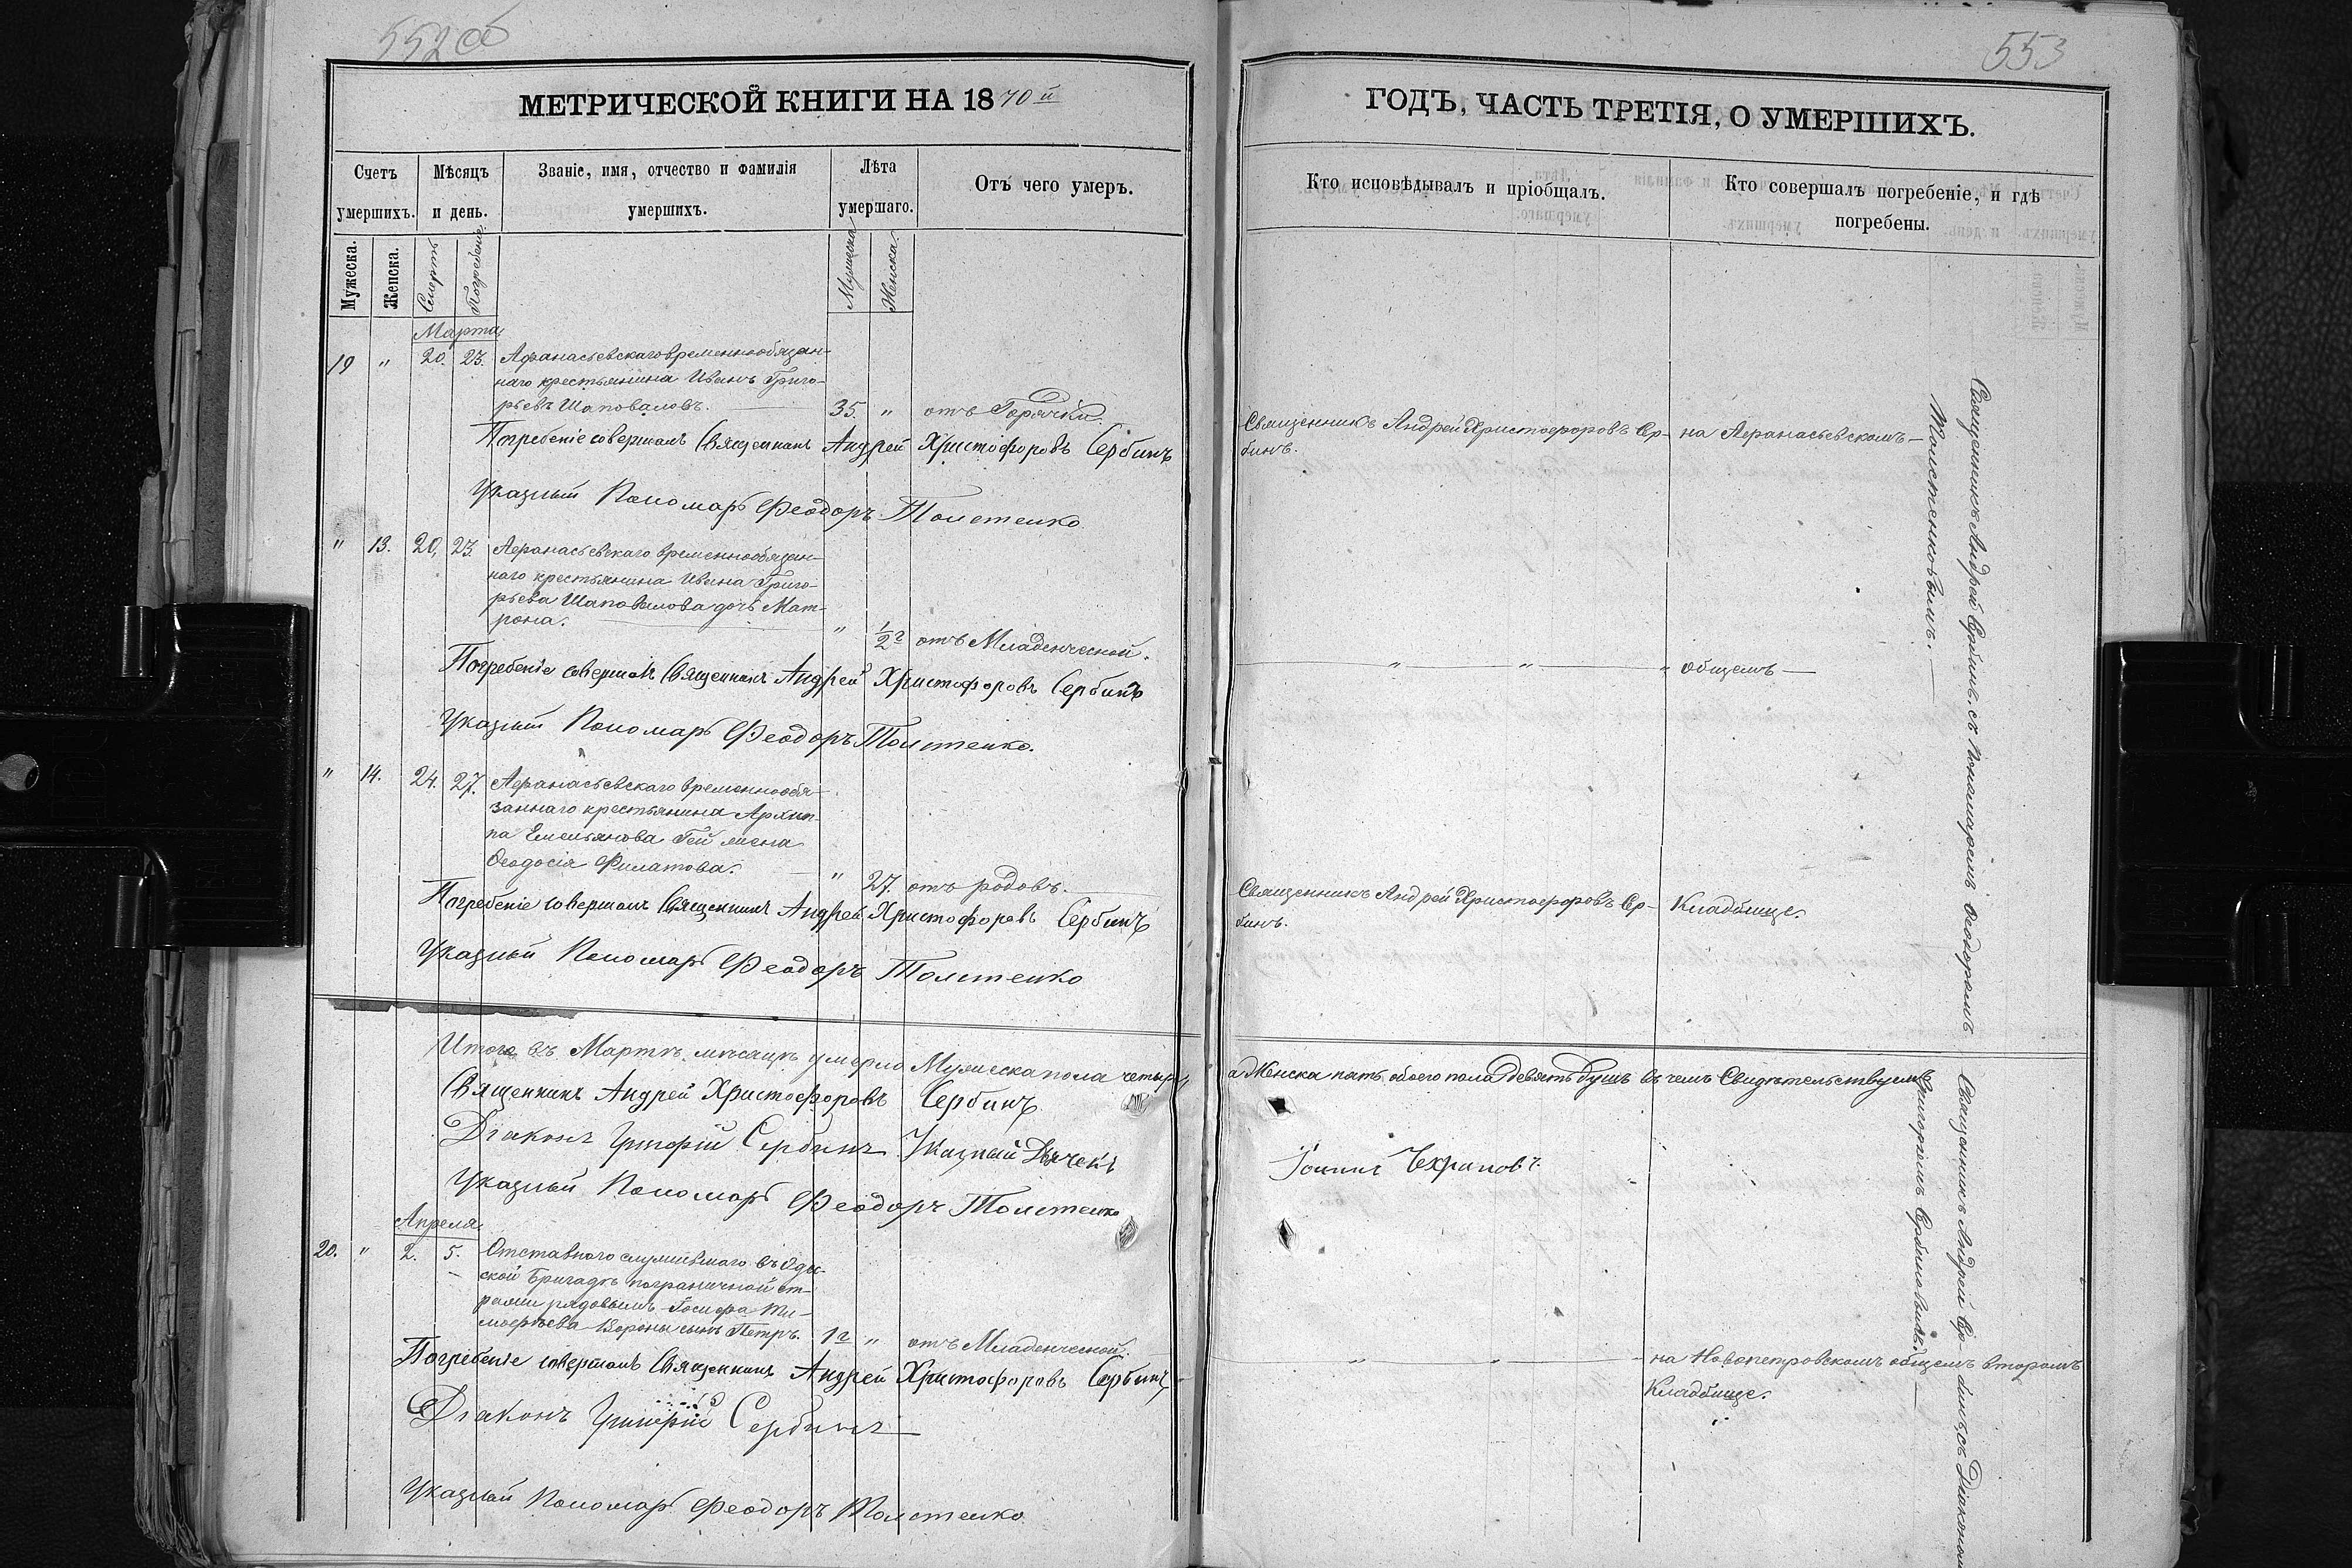 552 об
553
МЕТРИЧЕСКОЙ КНИГИ НА 1870й
ГОДЪ, ЧАСТЬ ТРЕТІЯ, О УМЕРШИХЪ.
Счетъ умершихъ.
Мѣсяцъ и день.
Званіе, имя, отчество и фамилія умершихъ.
Лѣта умершаго.
Отъ чего умеръ.
Кто исповѣдывалъ и пріобщалъ.
Кто совершалъ погребеніе, и гдѣ погребены.
Мужеска.
Женска.
Смерти
Погребенія.
Мужеска
Женска.
Марта
19 " 20. 23. Афанасьевскаго временнообязан-
наго крестьянина Иванъ Григо-
рьевъ Шаповаловъ. 35. " отъ Горячки.
Священникъ Андрей Христофоровъ Сер- на Афанасьевскомъ
бинъ.
Погребеніе совершалъ Священникъ Андрей Христофоровъ Сербинъ
Указный Пономарь Феодоръ Толстенко
" 13. 20. 23. Афанасьевскаго временнообязан-
наго крестьянина Ивана Григо-
рьева Шаповалова дочь Мат-
рона. " 1/2 г отъ Младенческой.
" " " общемъ
Погребеніе совершалъ Священникъ Андрей Христофоровъ Сербинъ
Указный Пономарь Феодоръ Толстенко.
" 14. 24. 27. Афанасьевскаго временнообя-
заннаго крестьянина Архип-
па Емельянова Гей жена
Ѳеодосія Филатова. " 27. отъ родовъ.
Священникъ Андрей Христофоровъ Сер- Кладбище.
бинъ.
Погребеніе совершалъ Священникъ Андрей Христофоровъ Сербинъ
Указный Пономарь Феодоръ Толстенко
Священникъ Андрей Сербинъ, съ Пономаремъ Ѳеодоромъ
Толстенковымъ.
Итого въ Мартѣ мѣсяцѣ умерло Мужеска пола четыри,
а Женска пять, обоего пола девять душъ въ чемъ Свидѣтельствуемъ
Священникъ Андрей Христофоровъ Сербинъ
Діаконъ Григорій Сербинъ Указный Дьячекъ
Іоаннъ
Указный Пономарь Феодоръ Толстенко
Апреля
20. " 2. 5. Отставного служившаго въ Одес-
ской Бригадѣ пограничной ст-
ражи рядовымъ Іосифа Ти-
мофѣева Вороны сынъ Петръ. 1 г " отъ Младенческой.
" " на Новопетровскомъ общемъ второмъ
Кладбище.
Погребеніе совершалъ Священникъ Андрей Христофоровъ Сербинъ
Діаконъ Григорій Сербинъ
Указный Пономарь Феодоръ Толстенко
Священникъ Андрей Сер- бинъ, съ Діакономъ
Григоріемъ Сербиновымъ.